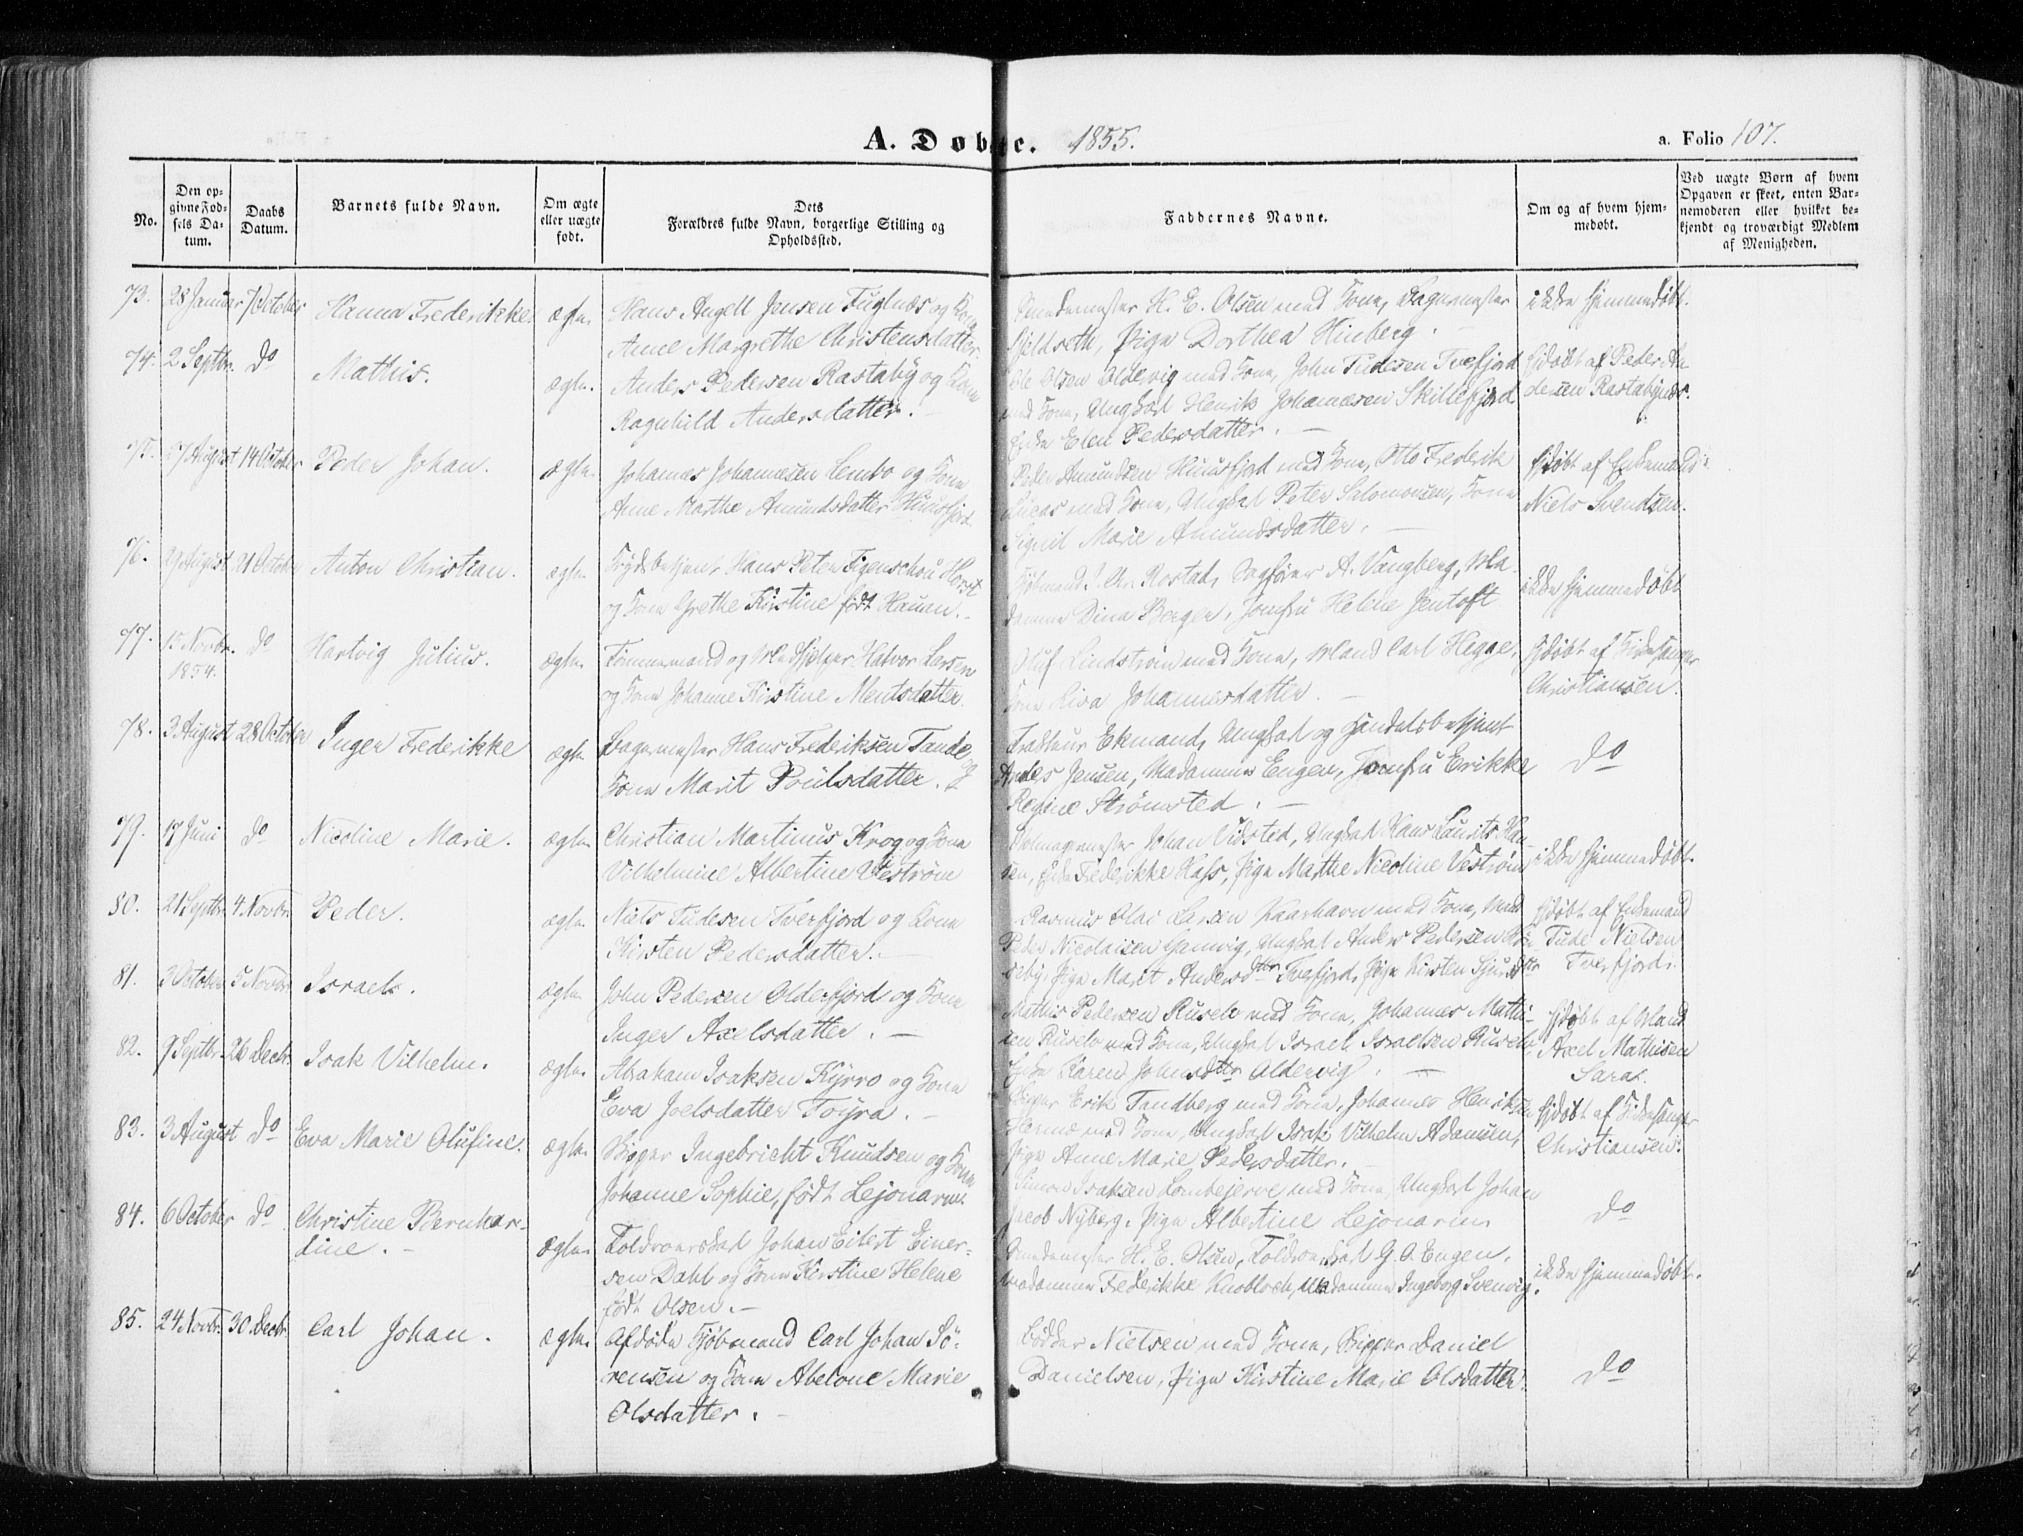 A. Døbte. 1855.
a. Folio 107.
No.
Den op-
givne Fød-
sels Da-
tum.
Daabs
Datum.
Barnets fulde Navn.
Om ægte
eller uægte
født.
Dets
Forældres fulde Navn, borgerlige Stilling og
Opholdssted.
Faddernes Navne.
Om og af hvem hjem-
medøbt.
Ved uægte Børn af hvem
Opgaven er skeet, enten Bar-
nemoderen eller hvilket be-
kjendt og troværdigt Medlem
af Menigheden.
73. 28 Januar 7 October Hanna Frederikke. ægte. Hans Angell Jensen Fuglnæs og Kone
Anne Margrethe Christensdatter.
Smedemester H. E. Olsen med Kone, Bagermester
Kjeldseth, Pige Dorthea Hinberg.
ikke hjemmedøbt.
74. 2 Septbr. do Mathis. ægte. Anders Pedersen Rastaby og Kone
Ragnhild Andersdatter.
Ole Olsen Oldervig med Kone, John Tudesen Tverfjord
med Kone, Ungkarl Henrik Johannesen Skillefjord
Enke Elen Pedersdatter.
hjdøbt af Peder An-
dersen Rastabynæs.
75. 27 August 14 October Peder Johan. ægte. Johannes Johannesen Lembo og Kone
Anne Marthe Amundsdatter Kuusfjord.
Peder Amundsen Kuusfjord med Kone, Otto Frederik
Lucas med Kone, Ungkarl Peter Salomonsen, Kone
Signil Marie Amundsdatter.
hjdøbt af Enkemand
Niels Svendsen.
76. 29 August 21 October Anton Christian. ægte. Hans Peter Figenschou Horst
og Kone Grethe Kirstine født Hauan.
Kjøbmand J. Chr. Rostad, Sagfører A. Vangberg, Ma-
damme Dina Berger, Jomfru Helene Jentoft
ikke hjemmedøbt
77. 15 Novbr. do Hartvig Julius. ægte. Tømmermand og Halvor Larsen
1854.
og Kone Johanne Kirstine Mentsdatter.
Oluf Lindstrøm med Kone, Mand Carl Hegge,
Kone Lisa Johannesdatter.
hjdøbt af Kirkesanger
Christiansen.
78. 3 August 28 October Inger Frederikke ægte. Bagermester Hans Frederiksen Tande og
Kone Marit Poulsdatter.
Ekmand, Ungkarl og Handelsbetjent
Anders Jensen, Madamme Engen, Jomfru Erikke
Regine Strømsted.
do
79. 17 Juni do Nicoline Marie. ægte. Christian Martinus Krog og Kone
Vilhelmine Albertine Veström
Johan Vidsted, Ungkarl Hans Laurits Han-
sen, Enke Frederikke Kass, Pige Marthe Nicoline Veström
ikke hjemmedøbt.
80. 21 Septbr. 4 Novbr. Peder. ægte. Niels Tudesen Tverfjord og Kone
Kirsten Pedersdatter.
Rasmus Olai Larsen Kaarhavn med Kone, Mand
Peder Nicolaisen Ungkarl Anders Pedersen
Pige Marit Andersdtr. Tverfjord, Pige Kirsten Sjursdtr
hjdøbt af Enkemand
Tude Nielsen
Tverfjord.
81. 3 October 5 Novbr. Israel. ægte. John Pedersen Olderfjord og Kone
Inger Axelsdatter.
Mathis Pedersen Ruselv med Kone, Johannes Mathi-
sen Ruselv med Kone, Ungkarl Israel Israelsen Ruselv
Enke Karen Johnsdtr Oldervig.
hjdøbt af Mand
Axel Mathisen
Saras.
82. 9 Septbr. 26 Decbr. Isak Vilhelm. ægte. Abraham Isaksen Kyrro og Kone
Eva Joelsdatter Toyra.
Skipper Erik Tandberg med Kone, Johannes Henriksen
med Kone, Ungkarl Isak Vilhelm Adamsen,
Pige Anne Marie Pedersdatter.
hjdøbt af Kirkesanger
Christiansen.
83. 3 August do Eva Marie Olufine. ægte. Skipper Ingebricht Knudsen og Kone
Johanne Sophie, født Lejonarm.
Simon Isaksen Lombejerve med Kone, Ungkarl Johan
Jacob Nyberg, Pige Albertine Lejonarm
do
84. 6 October do Christine Bernhar-
dine. ægte. Toldroerskarl Johan Eilert Einer-
sen Dahl og Kone Kirstine Helene
født Olsen.
Smedemester H. E. Olsen, Toldroerskarl G. O. Engen,
Madamme Frederikke Knobloch, Madamme Ingeborg Svenvig.
ikke hjemmedøbt.
85. 24 Novbr. 30 Decbr. Carl Johan. ægte. Afdøde Kjøbmand Carl Johan Sö-
rensen og Kone Abelone Marie
Olsdatter.
Bødker Nielsen med Kone, Skipper Daniel
Danielsen, Pige Kirstine Marie Olsdatter.
do